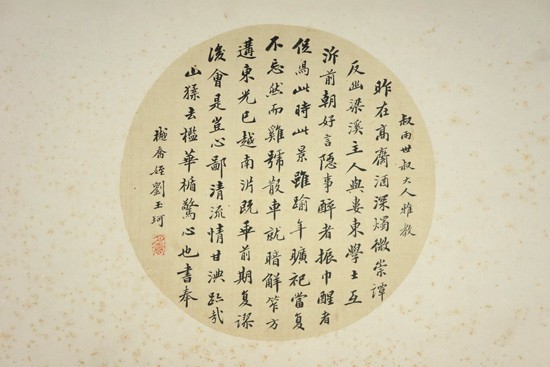 叔雨世叔大人雅教
昨在髙齋酒深燭微崇譚
反幽梁溪主人與婁東學士互
泝前朝好言隱事醉者振巾醒者
促舄此時此景雖踰年曠祀當復
不忘然而雞號散車就暗解笮方
遘東光已越南既乖前期复謬
後會是豈心鄙清流情甘淟哉
山猱去檻華楯驚心也書奉
姪劉玉珂